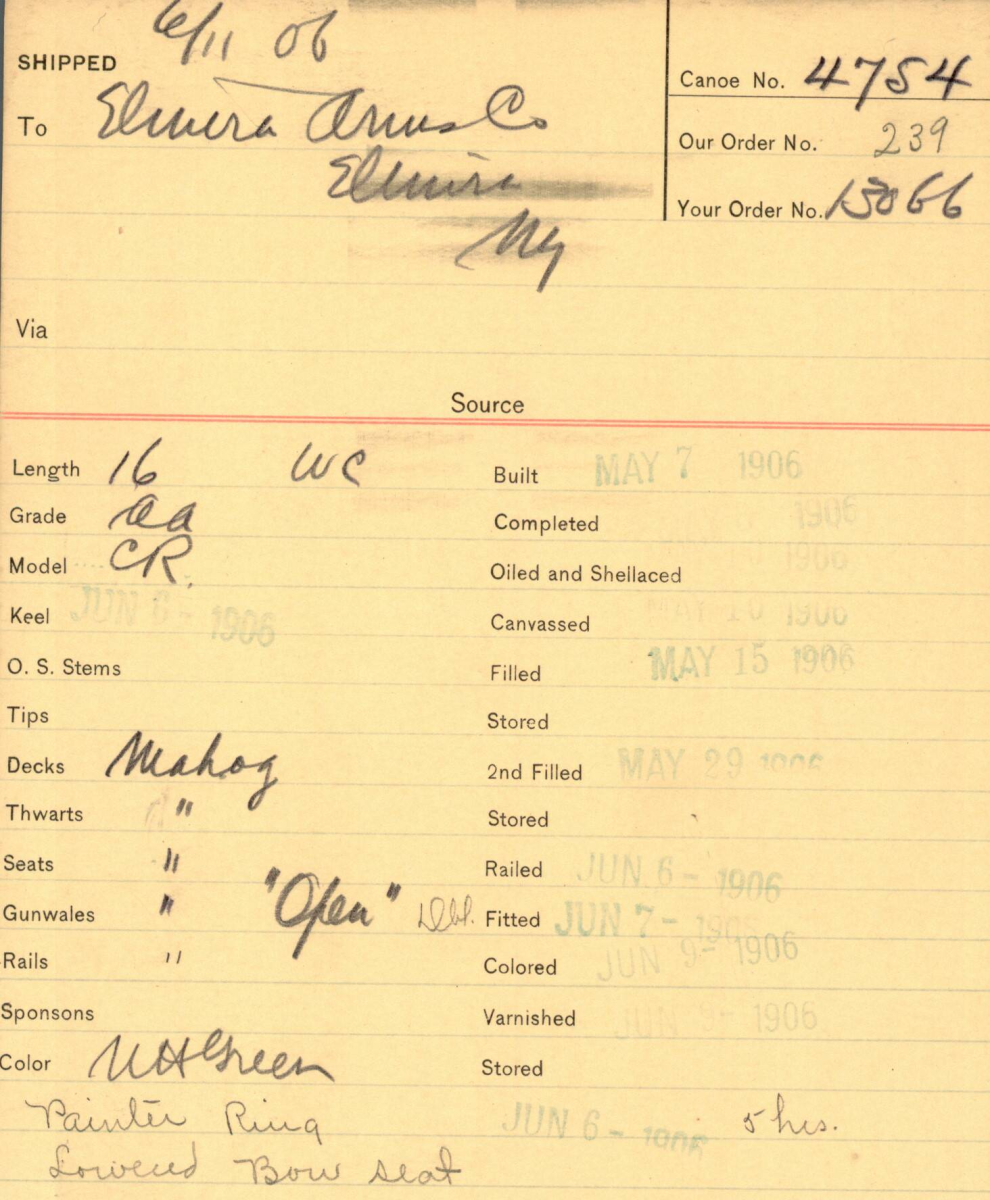 6/11 06
SHIPPED
To Elmira Arms Co
Elmira
NY
Canoe No. 4754
Our Order No. 239
Your Order No. 15066
Via
Source
Length 16 WC
Grade AA
Model CR.
Keel JUN 6 - 1906
O. S. Stems
Tips
Decks Mahog
Thwarts "
Seats "
Gunwales " "Open" Dbl.
Rails "
Sponsons
Color Green
Painter Ring
Lowered Bow seat
Built MAY 7 1906
Completed 1906
Oiled and Shellaced 1906
Canvassed MAY 10 1906
Filled MAY 15 1906
Stored
2nd Filled MAY 29 1906
Stored
Railed JUN 6 - 1906
Fitted JUN 7 - 1906
Colored JUN 9 - 1906
Varnished JUN 9 - 1906
Stored
JUN 6 - 1906 5 hrs.